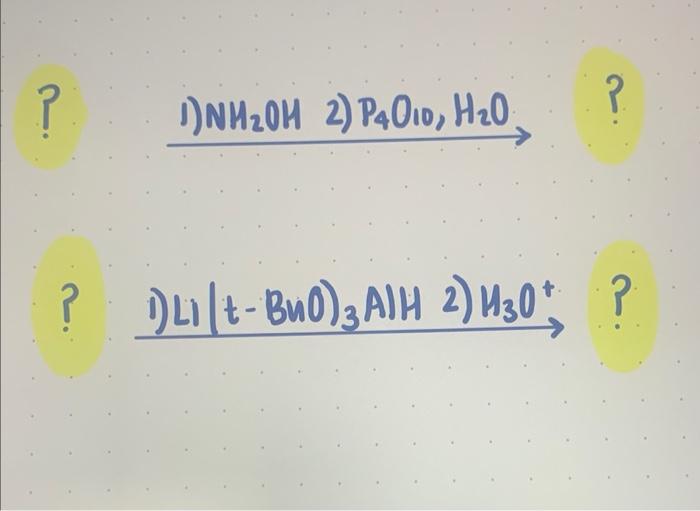 ? 1) NH₂OH 2) P₄O₁₀, H₂O ?
? 1) Li(t-BuO)₃AlH 2) H₃O⁺ ?